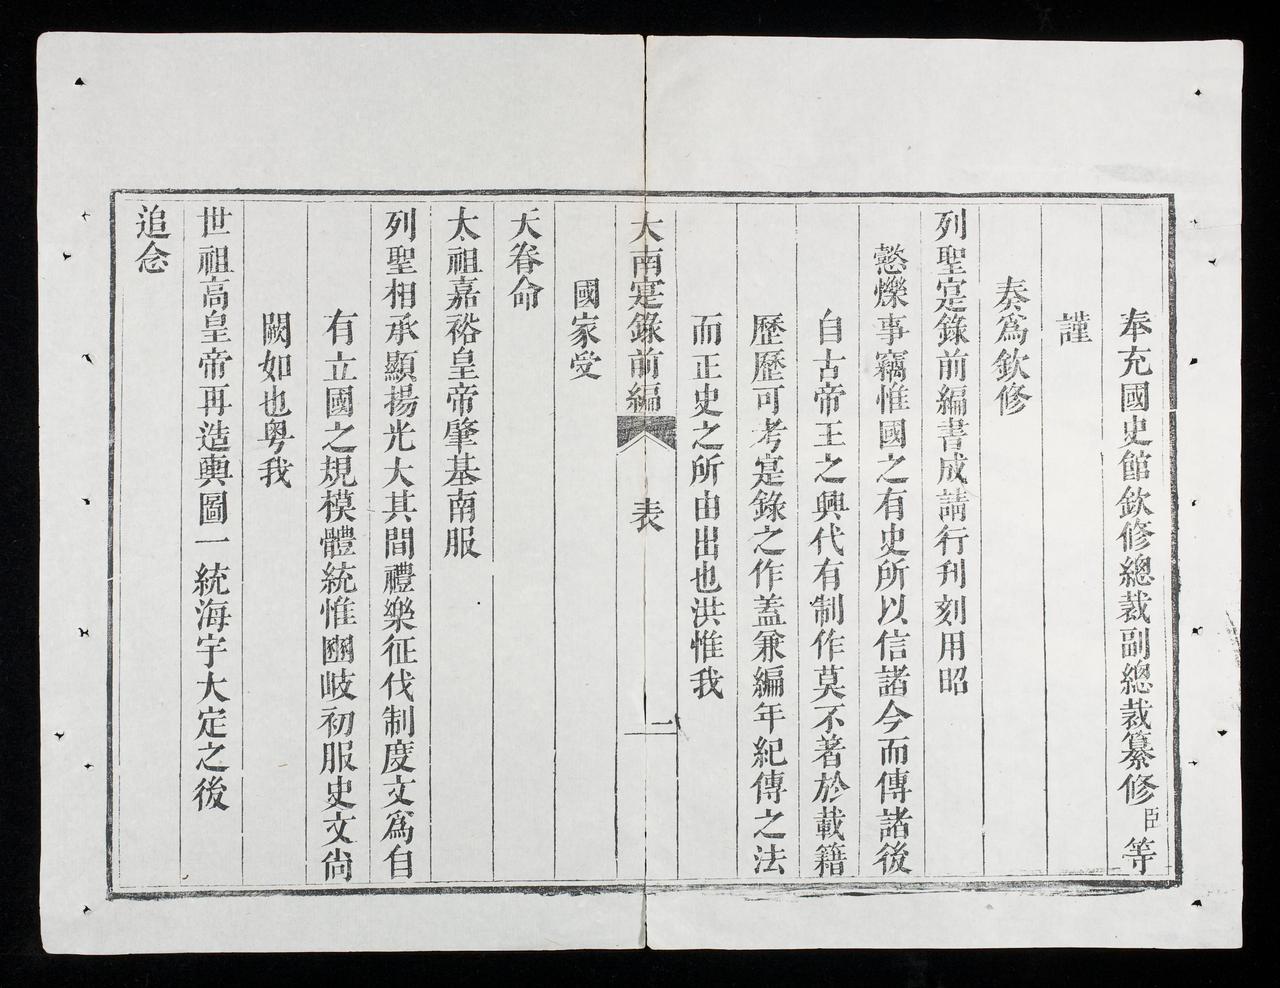 奉充國史館欽修總裁副總裁纂修臣等
謹
奏爲欽修
列聖寔錄前編書成請行刊刻用昭
懿爍事竊惟國之有史所以信諸今而傳諸後
自古帝王之興代有制作莫不著於載籍
歷歷可考寔錄之作蓋兼編年紀傳之法
而正史之所由出也洪惟我
大南寔錄前編 表 一
國家受
天眷命
太祖嘉裕皇帝肇基南服
列聖相承顯揚光大其間禮樂征伐制度文爲自
有立國之規模體統惟豳岐初服史文尙
闕如也粤我
世祖高皇帝再造輿圖一統海宇大定之後
追念